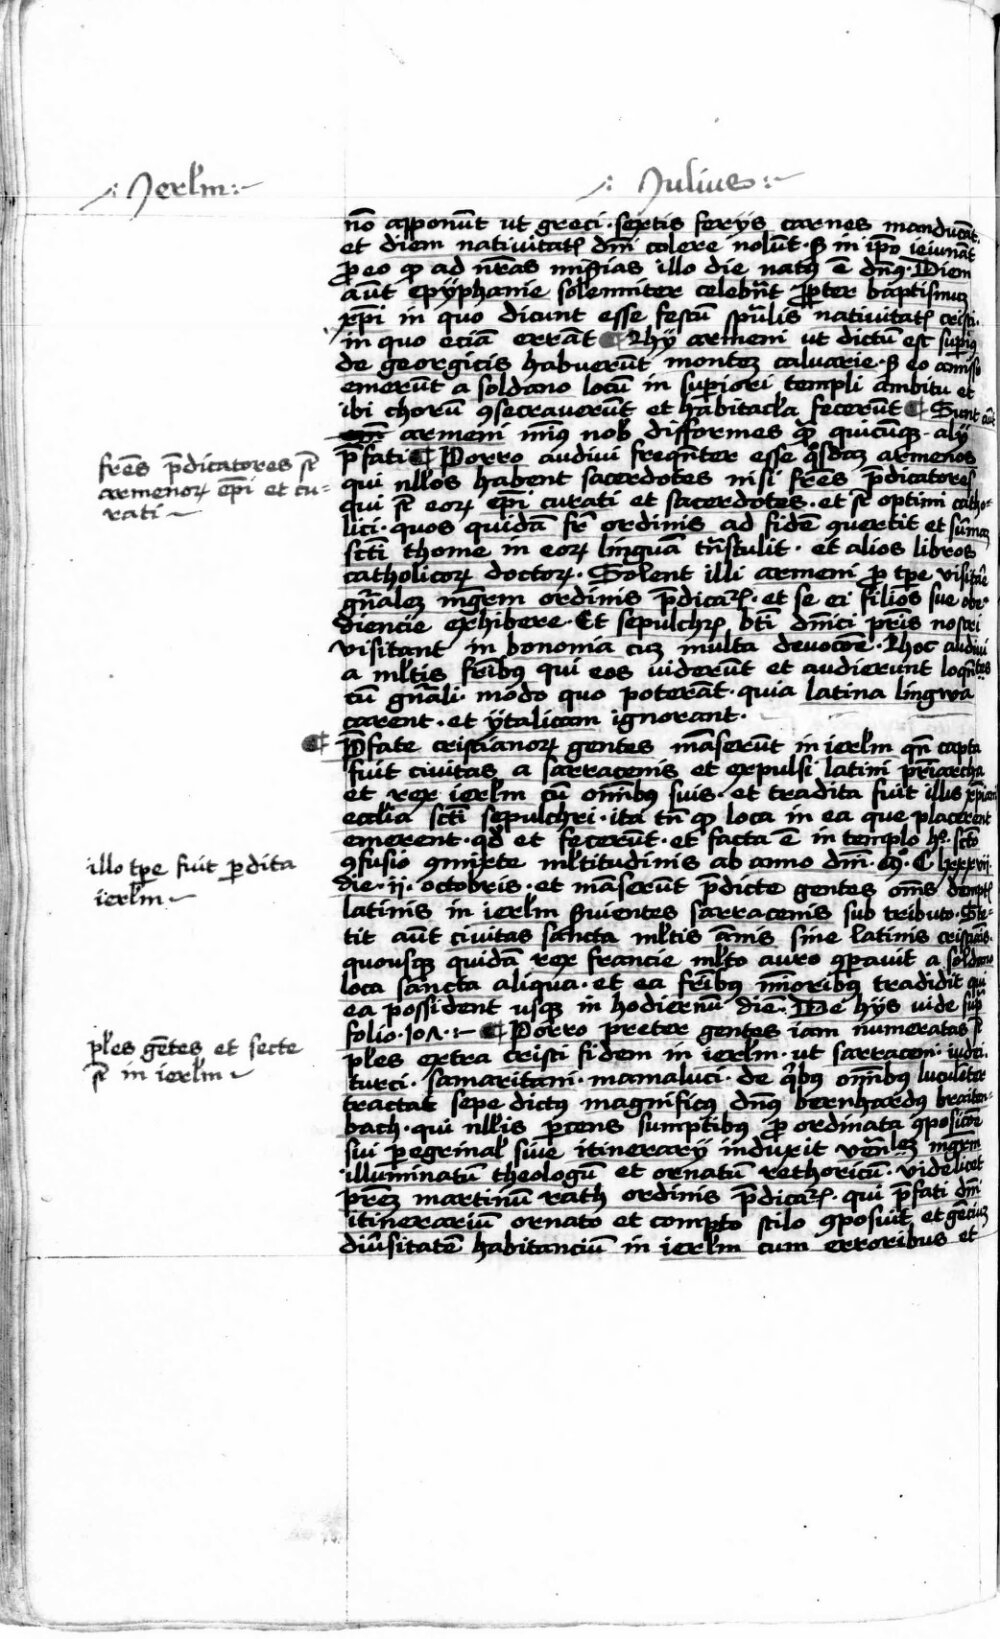 ⁖ Jerl̄m ⁖
⁖ Julius ⁖
nō apponūt ut greci · sextis ferijs carnes manducāt ·
et diem nativitatꝭ dn̄i colere nolūt · Sꝫ in ip̄o ieiunāt
ꝓ eo ꝙ ad nr̄as miẜias illo die natꝰ ē dn̄s · Diem
aūt epÿphanie solenniter celebrāt ꝓpter baptismuꝫ
xp̄i in quo dicunt esse festū spūalis nativitatꝭ cristi ·
in quo eciā errāt ¶ Hÿ armeni ut dictū est supiꝰ
de georgicis habuerūt monteꝫ calvarie · Sꝫ eo amisso
emerūt a soldano locū in superiori templi ambitu et
ibi chorū ꝯsecraverūt et habitacl̄a fecerūt ¶ Sunt aūt
armeni minꝰ nob̄ difformes qꝫ quicūqꝫ alij
p̄fati ¶ Porro audivi freqn̄ter esse qͦsdaꝫ armenos
qui nll̄os habent sacerdotes nisi fr̄es p̄dicatores
qui sē eorꝝ ep̄i curati et sacerdotes · et sē optimi catho-
lici · quos quidā fr̄ ordinis ad fidē ꝯvertit et sūmaꝫ
scti thome in eorꝝ linguā tn̄stulit · et alios libros
catholicorꝝ doctorꝝ · Solent illi armeni ꝓ tpe visitare
gn̄aleꝫ mgr̄m ordinis p̄dicatꝝ · et se ei filios sue obe-
diencie exhibere · Et sepulchꝝ bt̄i dn̄ici pr̄is nostri
visitant in bononia cuꝫ multa devocōe · Hoc audivi
a ml̄tis fr̄ibꝰ qui eos viderūt et audierunt loqn̄tes
cū gn̄ali · modo quo poterāt · quia latina lingwa
carent · et ÿtalicam ignorant ·
fr̄es p̄dicatores sē
armenorꝝ ep̄i et cu-
rati
¶ P̄fate cristianorꝝ gentes māserūt in ierl̄m qn̄ capta
fuit civitas a sarracenis et expulsi latini pr̄iarcha
et rex ierl̄m cū om̄ibus suis · et tradita fuit illis xp̄ianis
eccl̄ia scti sepulchri · ita tn̄ ꝙ loca in ea que placerent
emerent · qd̄ et fecerūt · et facta ē in templo hͦ sctō
ꝯfusio ꝯmixte ml̄titudinis ab anno dn̄i · Mͦ · C · lxxxvij ·
die · ij · octobris · et māserūt p̄dicte gentes om̄s demptꝭ
latinis in ierl̄m ẜvientes sarracenis sub tributo · Ste-
tit aūt civitas sancta ml̄tis annis sine latinis cristianis ·
quousqꝫ quidā rex francie ml̄to auro ꝯparavit a soldano
loca sancta aliqua · et ea fr̄ibꝰ minoribus tradidit qui
ea possident usqꝫ in hodiernū diē · De hijs vide sup̄
folio · 101 · ¶ Porro preter gentes iam numeratas sē
pl̄es extra cristi fidem in ierl̄m · ut sarraceni · iudei ·
turci · samaritani · mamaluci · de qͥbus om̄ibus luculēter
tractat sepe dictꝰ magnificꝰ dn̄us bernhardꝰ braiten-
bach · qui nll̄is ꝑcens sumptibus ꝓ ordinata ꝯposicōe
sui ꝑegrinaḷ sive itinerarij induxit vēn̄leꝫ mgr̄m
illuminatū theologū et ornatū rethoricū · videlicet
pr̄eꝫ martinū rath ordinis p̄dicatꝝ · qui p̄fati dn̄i
itinerariū ornato et compto stilo ꝯposuit et genciuꝫ
diẜsitatē habitanciū in ierl̄m cum erroribus et
illo tpe fuit ꝑdita
ierl̄m
pl̄es gētes et secte
sē in ierl̄m